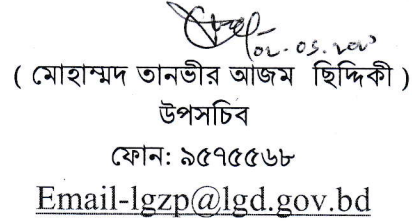 ( মোহাম্মদ তানভীর আজম ছিদ্দিকী )
উপসচিব
ফোন: ৯৫৭৫৫৬৮
Email-lgzp@lgd.gov.bd